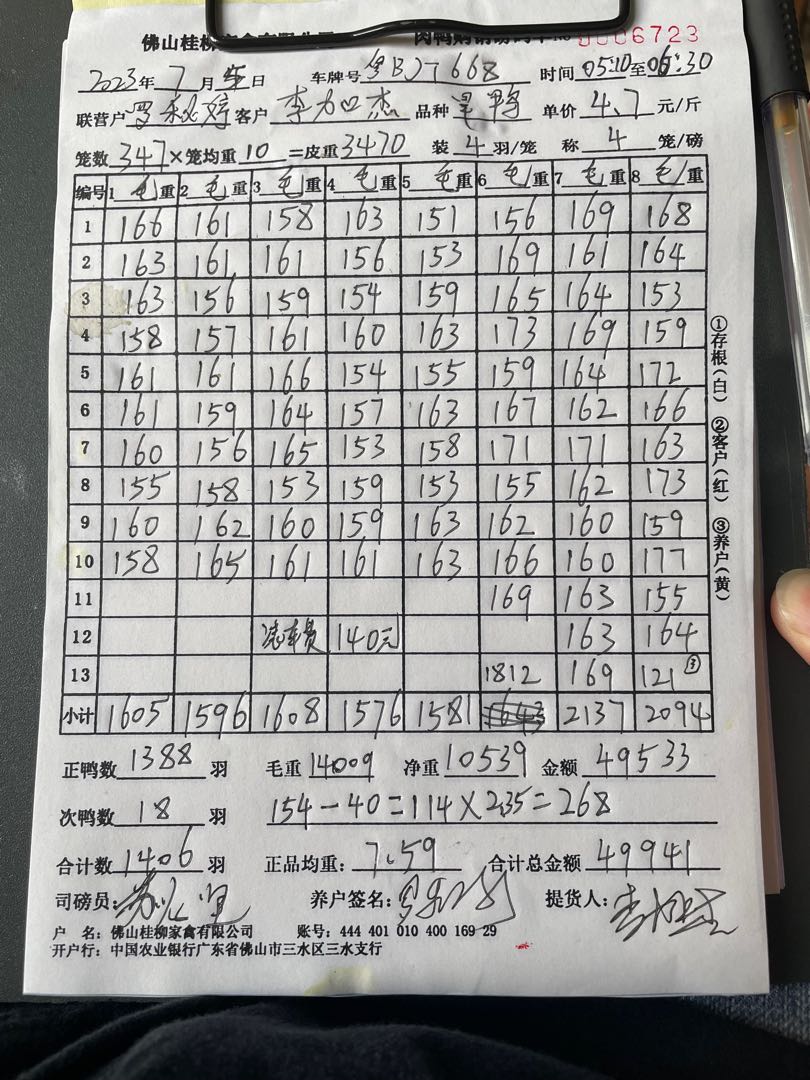 佛山桂柳家禽有限公司 肉鸭购销磅码单 No 0006723
2023年 7月 5日 车牌号 粤BJ7668 时间 05:10至06:30
联营户 罗秋婷 客户 李加杰 品种 单价 4.7 元/斤
笼数 347 ×笼均重 10 =皮重 3470 装 4 羽/笼 称 4 笼/磅
编号 1 毛重 2 毛重 3 毛重 4 毛重 5 毛重 6 毛重 7 毛重 8 毛重
1 166 161 158 163 151 156 169 168
2 163 161 161 156 153 169 161 164
3 163 156 159 154 159 165 164 153
4 158 157 161 160 163 173 169 159
5 161 161 166 154 155 159 164 172
6 161 159 164 157 163 167 162 166
7 160 156 165 153 158 171 171 163
8 155 158 153 159 153 155 162 173
9 160 162 160 159 163 162 160 159
10 158 165 161 161 163 166 160 177
11 169 163 155
12 车费 140元 163 164
13 1812 169 121 ③
小计 1605 1596 1608 1576 1581 1643 2137 2094
正鸭数 1388 羽 毛重 14009 净重 10539 金额 49533
次鸭数 18 羽 154-40=114×2.35=268
合计数 1406 羽 正品均重: 7.59 合计总金额 49941
司磅员: 养户签名: 提货人:
户 名: 佛山桂柳家禽有限公司 账号: 444 401 010 400 169 29
开户行: 中国农业银行广东省佛山市三水区三水支行
①存根(白) ②客户(红) ③养户(黄)